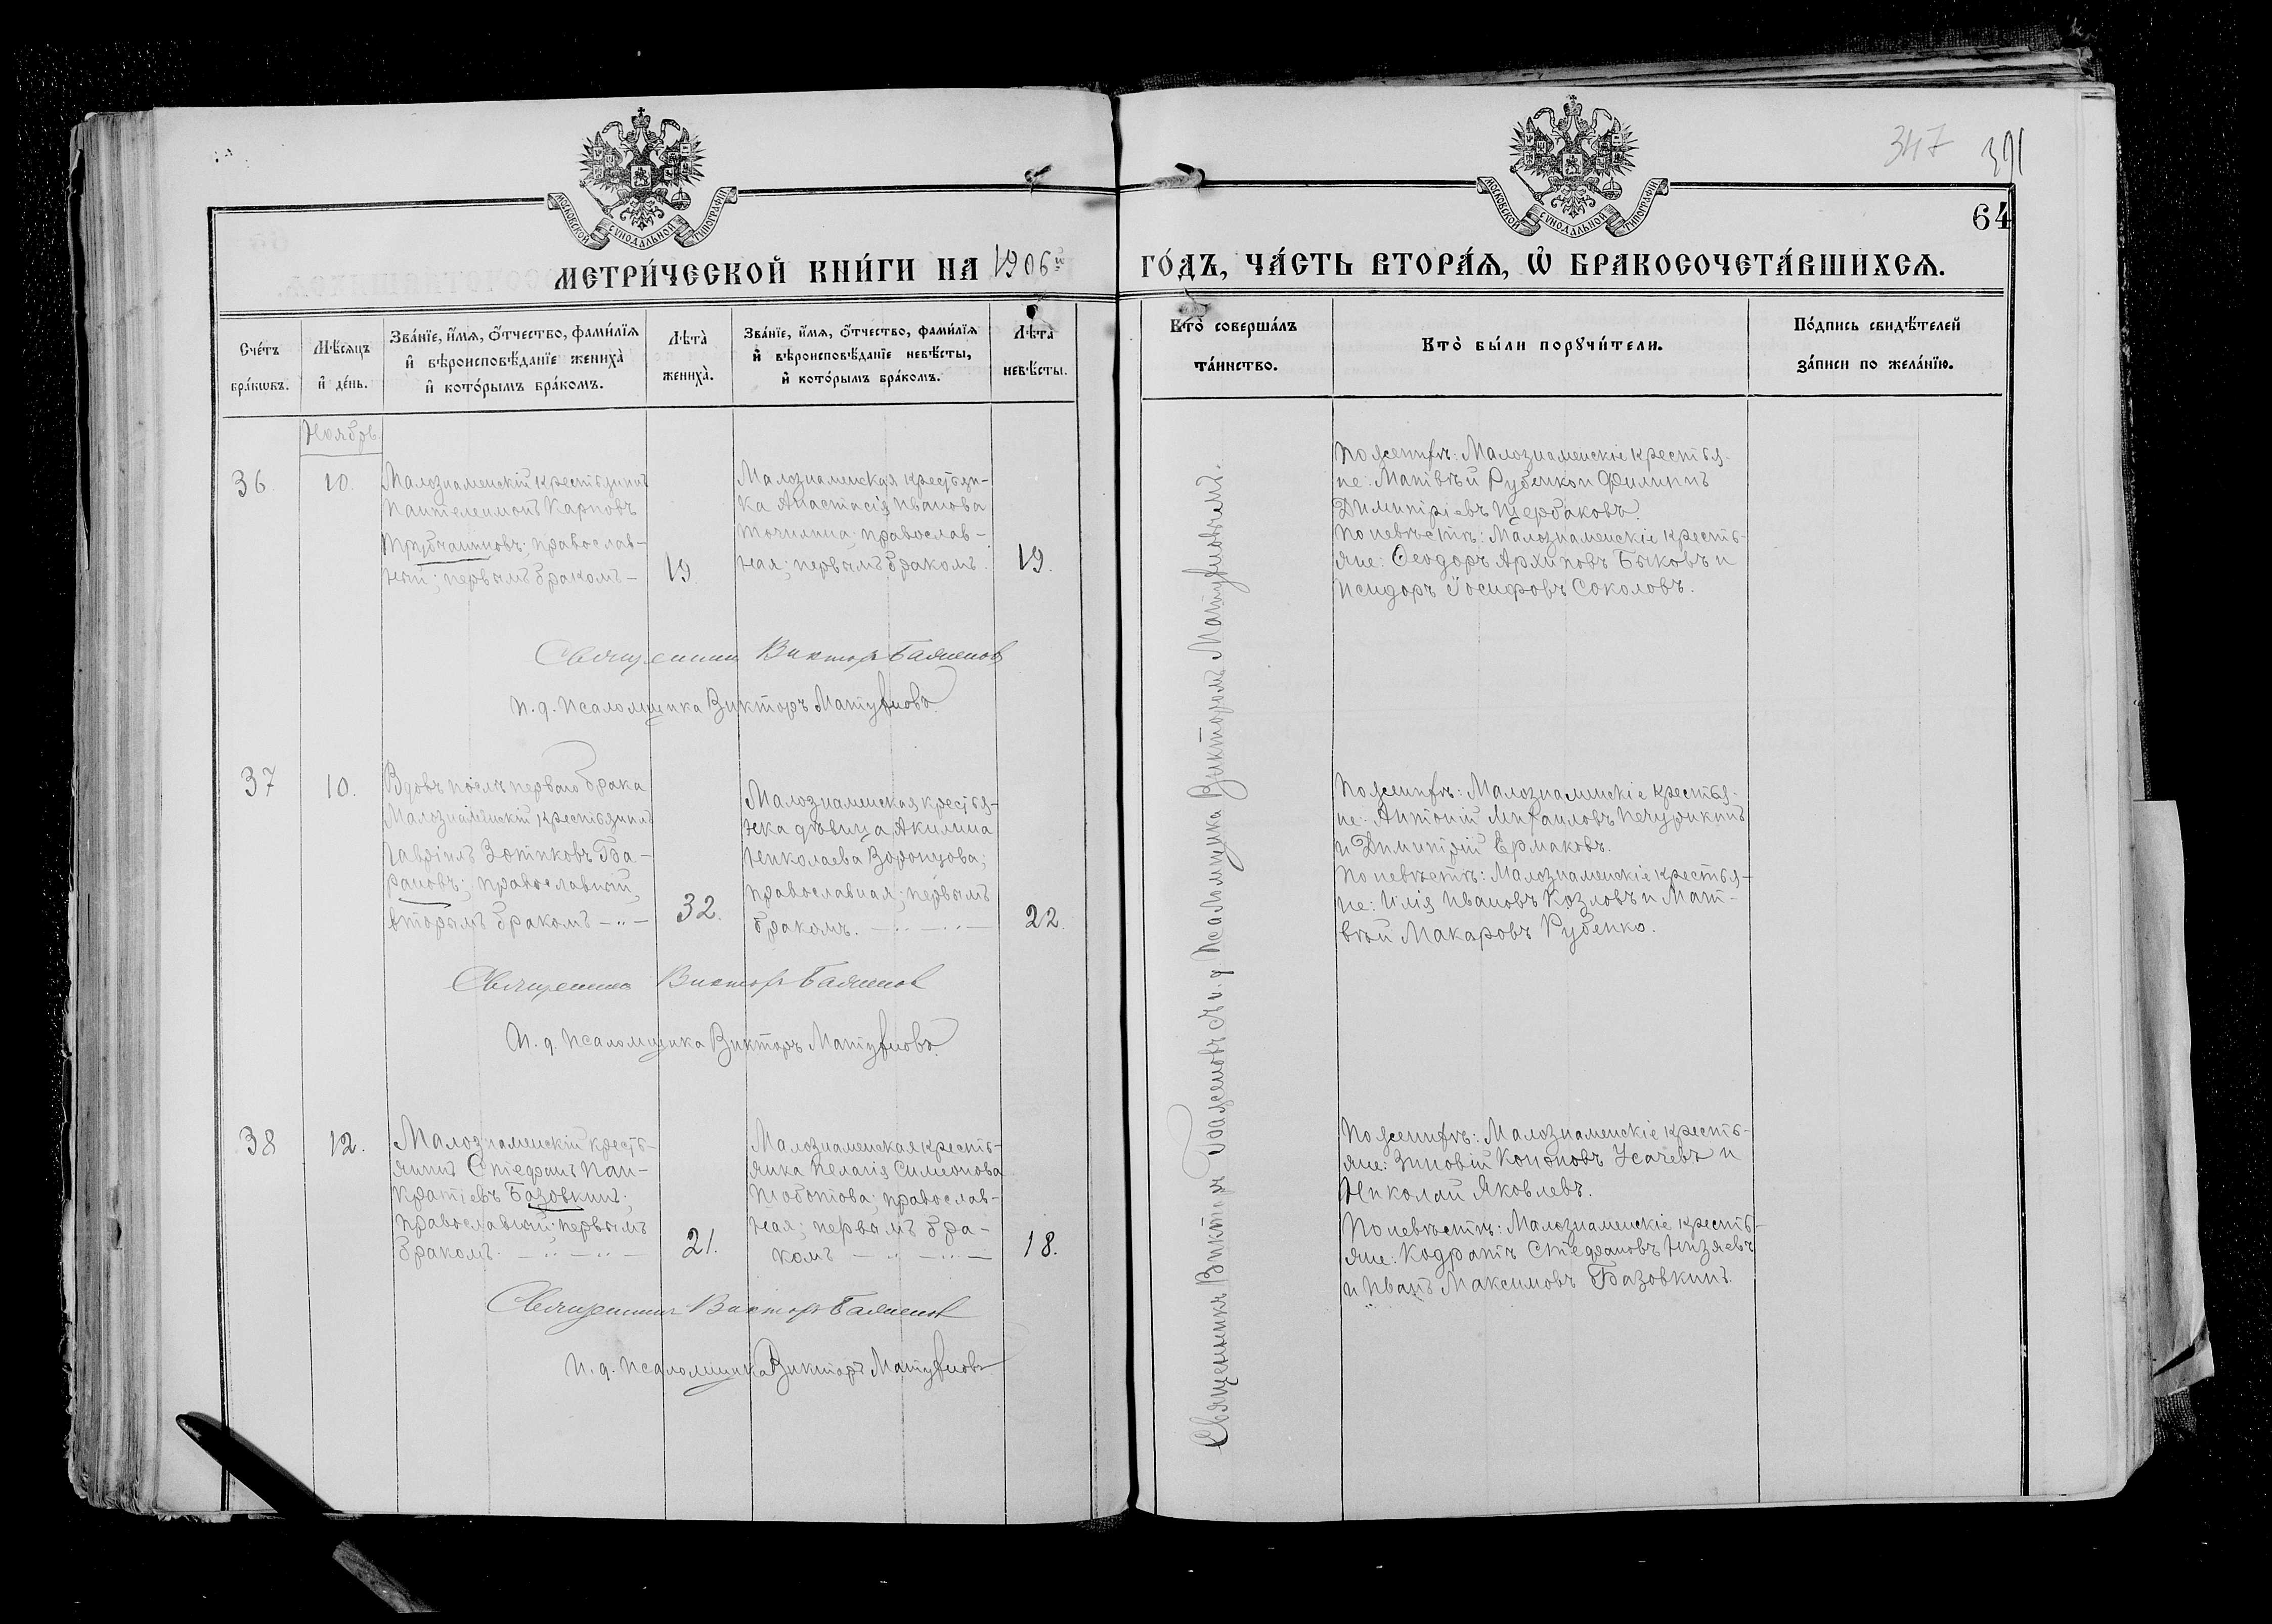 347 391
64
МОСКОВСКОЙ СѴНОДАЛЬНОЙ ТИПОГРАФІИ
МОСКОВСКОЙ СѴНОДАЛЬНОЙ ТИПОГРАФІИ
МЕТРИ́ЧЕСКОЙ КНИ́ГИ НА 1906й ГО́ДЪ, ЧА́СТЬ ВТОРА́Ѧ, Ѡ҆ БРАКОСОЧЕТА́ВШИХСѦ.
Сче́тъ бра́кѡвъ.
Мѣ́сѧцъ и҆ де́нь.
Зва́нїе, и҆́мѧ, о҆́тчество, фами́лїѧ
и҆ вѣроисповѣ́данїе жениха̀
и҆ кото́рымъ бра́комъ.
Лѣ́та̀ жениха̀.
Зва́нїе, и҆́мѧ, о҆́тчество, фами́лїѧ
и҆ вѣроисповѣ́данїе невѣ́сты,
и҆ кото́рымъ бра́комъ.
Лѣ́та̀ невѣ́сты.
Кто̀ соверша́лъ та́инство.
Кто̀ бы́ли порꙋчи́тели.
По́дпись свидѣ́телей
за́писи по жела́нїю.
Ноябрь.
36.
10.
Малознаменскій крестьянинъ
Пантелеимонъ Карповъ
Трубчаниновъ; православ-
ный; первымъ бракомъ —
19.
Малознаменская крестьян-
ка Анастасія Иванова
Точилина; православ-
ная; первымъ бракомъ.
19.
По женихѣ: Малознаменскіе крестья-
не: Матвѣй Рубенко и Филиппъ
Димитріевъ Щербаковъ.
По невѣстѣ: Малознаменскіе кресть-
яне: Ѳеодоръ Архиповъ Быковъ и
Исидоръ Іосифовъ Соколовъ.
Священник Виктор Баженов
И. д. псаломщика Викторъ Матуфновъ
37
10.
Вдовъ послѣ перваго брака
Малознаменскій крестьянинъ
Гавріилъ Зотиковъ Ба-
рановъ; православный,
вторымъ бракомъ — „ —
32.
Малознаменская крестья-
нка дѣвица Акилина
Николаева Воронцова;
православная; первымъ
бракомъ. — „ — „ —
22.
По женихѣ: Малознаменскіе крестья-
не: Антоній Михаиловъ Печурикинъ
и Димитрій Ермаковъ.
По невѣстѣ: Малознаменскіе крестья-
не: Илія Ивановъ Козловъ и Мат-
вѣй Макаровъ Рубенко.
Священник Виктор Баженов
И. д. псаломщика Викторъ Матуфновъ
38
12.
Малознаменскій кресть-
янинъ Стефанъ Пан-
кратіевъ Базовкинъ;
православный; первымъ
бракомъ. — „ — „ —
21.
Малознаменская кресть-
янка Пелагія Симеонова
православ-
ная; первымъ бра-
комъ — „ — „ —
18.
По женихѣ: Малознаменскіе кресть-
яне: Зиновій Кононовъ Усачевъ и
Николай Яковлевъ.
По невѣстѣ: Малознаменскіе кресть-
яне: Кодратъ Стефановъ Низяевъ
и Иванъ Максимовъ Базовкинъ.
Священник Виктор Баженов
И. д. псаломщика Викторъ Матуфновъ
Священникъ Викторъ Баженовъ съ и. д. псаломщика Викторомъ Матуфновымъ.